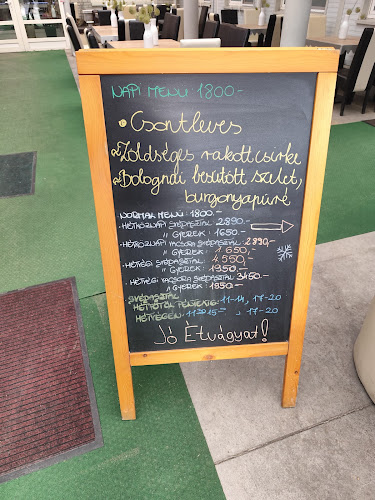 NAPI MENÜ 1800.-
• Csontleves
~ Zöldséges rakott csirke
~ Bolognai besütött szelet,
burgonyapüré
NORMÁL MENÜ: 1800.-
• HÉTKÖZNAPI SVÉDASZTAL: 2890.-
" GYEREK: 1650.-
• HÉTKÖZNAPI VACSORA SVÉDASZTAL: 2890,-
" GYEREK: 1650,-
• HÉTVÉGI SVÉDASZTAL: 4550,-
" GYEREK: 1950,-
• HÉTVÉGI VACSORA SVÉDASZTAL: 3450.-
" GYEREK: 1850.-
SVÉDASZTAL
HÉTFŐTŐL PÉNTEKIG: 11-14, 17-20
HÉTVÉGÉN: 1130-15, 17-20
Jó Étvágyat!